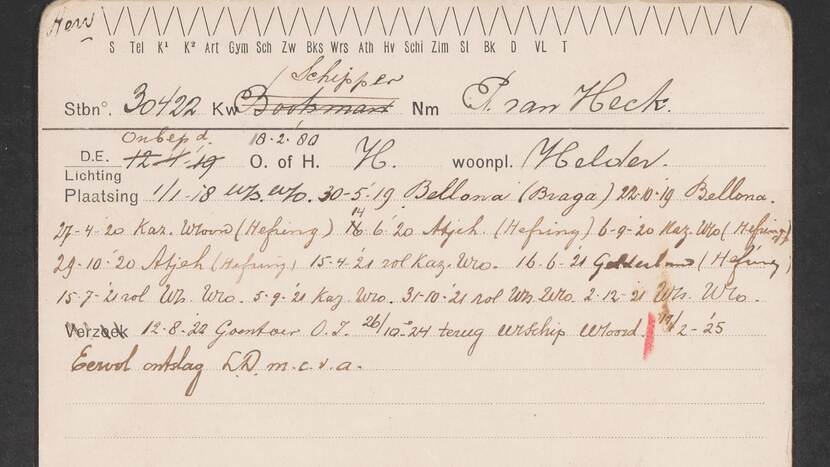 Herv
S Tel K¹ K² Art Gym Sch Zw Bks Wrs Ath Hv Schi Zim Sl Bk D VL T
Schipper
Stbnº. 30422 Kw Bootsman Nm P. van Heck.
Onbep d. 18-2-'80
D.E. 12-1-'19 O. of H. H. woonpl. Helder.
Lichting
Plaatsing 1/1-18 Wh. Wo. 30-5-'19 Bellona (Braga) 22-10-'19 Bellona.
27-4-'20 Kaz. Woord (Hefring) 14 16-6-'20 Atjeh. (Hefring) 6-9-'20 Kaz. Wo (Hefring)
29-10-'20 Atjeh (Hefring) 15-4-'21 rol Kaz. Wo. 16-6-'21 Gelderland (Hefring)
15-7-'21 rol Wh. Wo. 5-9-'21 Kaz. Wo. 31-10-'21 rol Wh. Wo. 2-12-'21 Wh. Wo.
Verzoek 12-8-'22 Goentoer O.I. 26/10-'24 terug Wschip Woord. 19/2-'25
Eervol ontslag L.D. m.c.v.a.